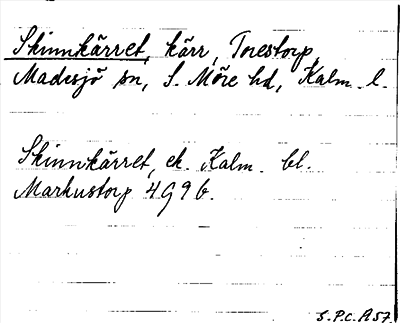 Skinnkärret, kärr, Torestorp,
Madesjö sn, S. Möre hd, Kalm. l.
Skinnkärret, ek. Kalm. bl.
Markustorp 4G9b.
S.P.C. A57.